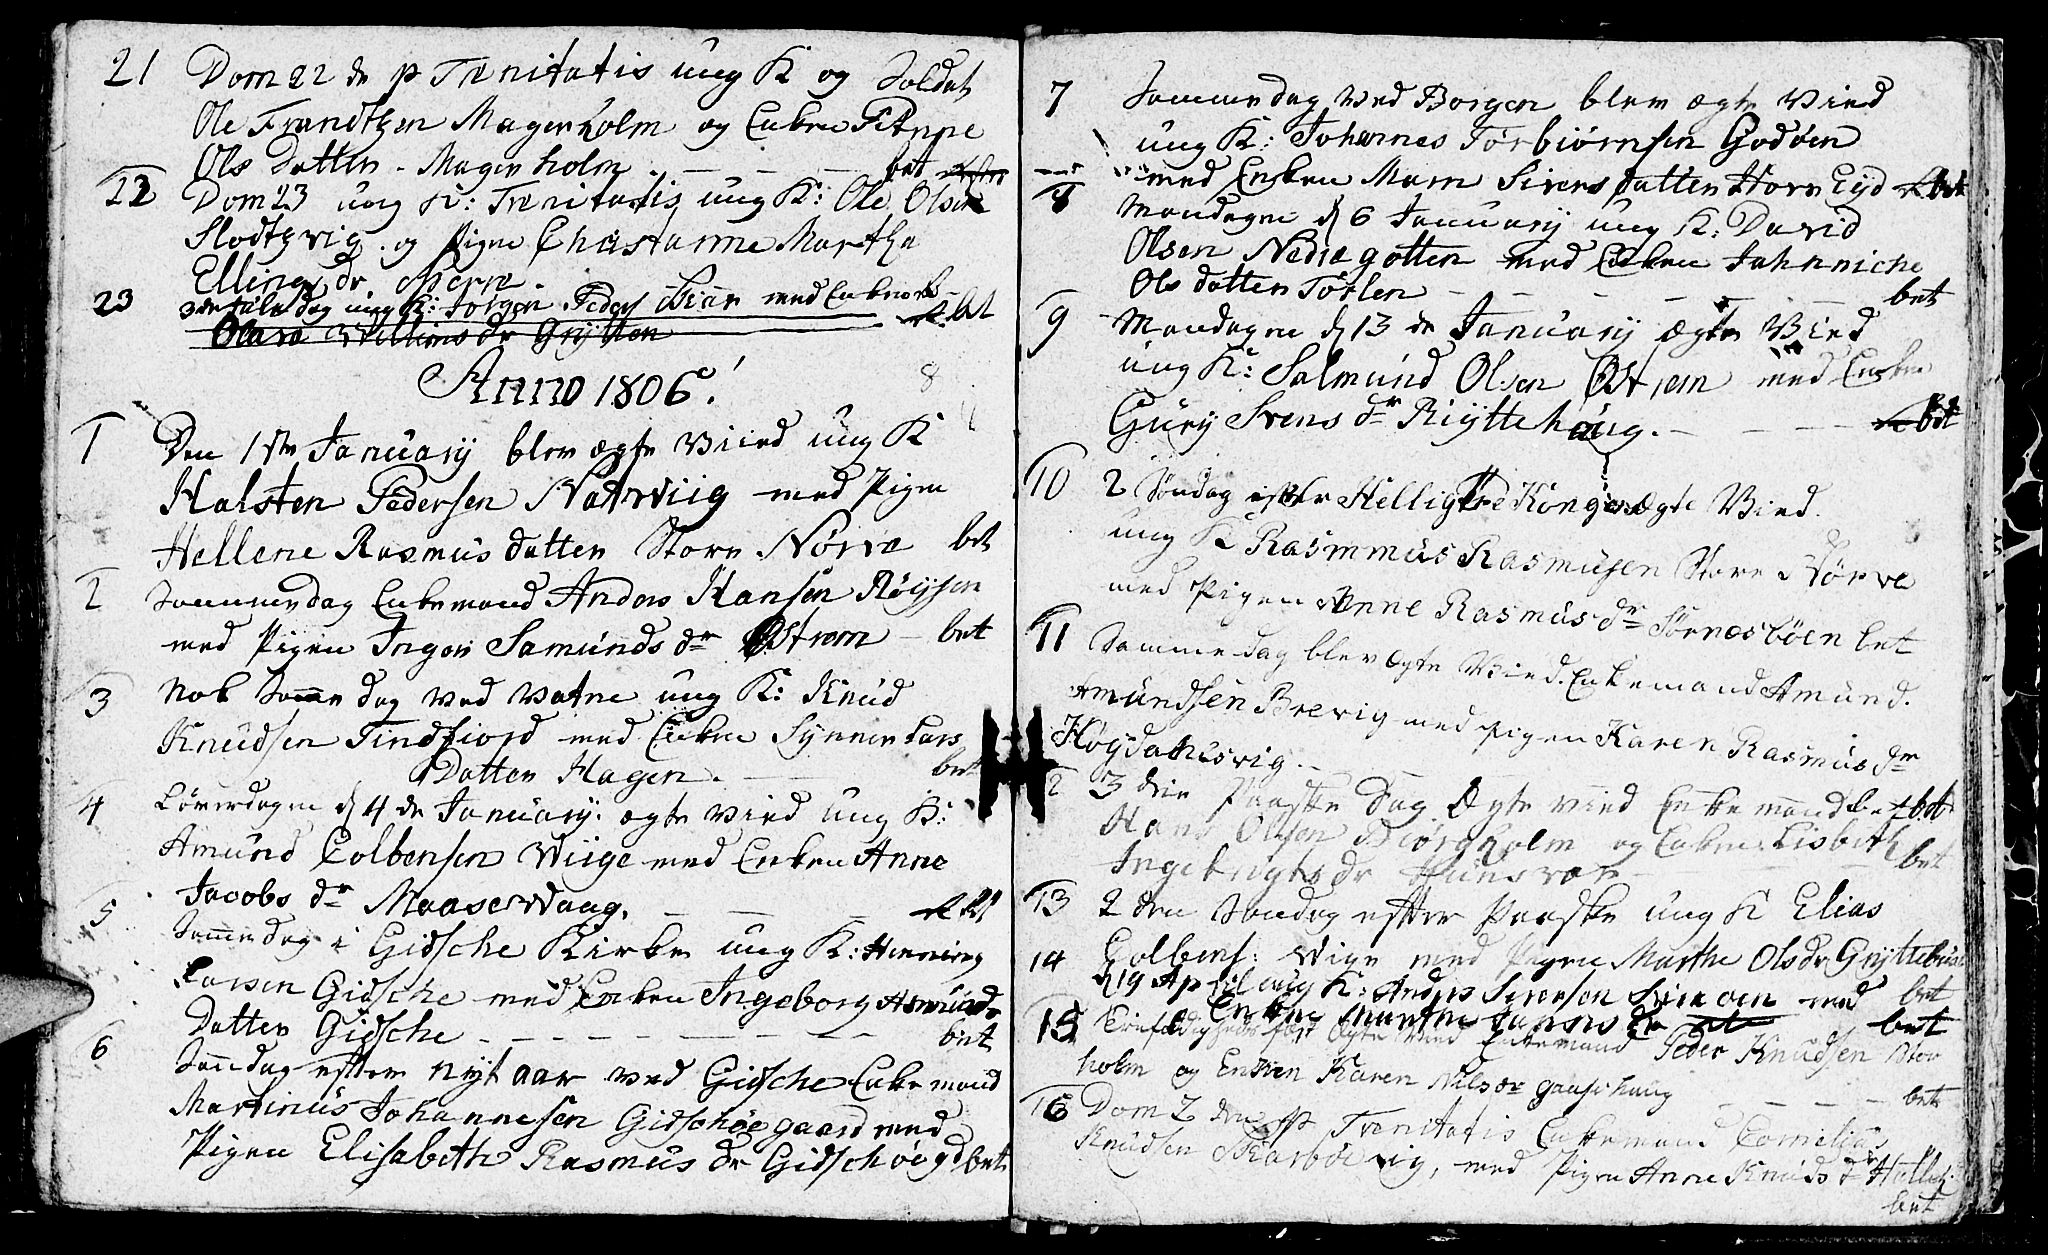 21 Dom 22 de p Trenitatis ung K og Soldat
Ole Frandtzen Magerholm og Enken Pernne
Ols Datter - Magerholm - - - bet
22 Dom 23 ung K: Trenitatis ung K: Ole Olsen
Slodtzvig og Pigen Chrastanne Marthe
Ellings dr Opern
23 3die Juledag ung K: Jørgen Peders med Enken bet
Olava Willems dr Grytten
Anno 1806!
1 Den 1ste January blev ægte Viied ung K
Halsten Pedersen Natwiig med Pigen
Hellene Rasmus datter Store Nørve bet
2 Sammedag Enkemand Anders Hansen Røysen
med Pigen Inger Samunds dr Østrem - bet
3 Nok Samme dag ved Vatne ung K: Knud
Knudsen Tindfiord med Enken Synnev Lars
Datter Hagen. bet
4 Løverdagen d 4 de January ægte Vied ung K:
Amund Colbensen Wiige med Enken Anne
Jacobs dr Maaseswaag. - - - bet
5 Samme dag i Gidsche Kirke ung K: Henning
Larsen Gidsche med Enken Ingeborg Asmunds
Datter Gidsche - - - - - bet
6 Søndag efter nyt aar ved Gidsche Enkemand
Martinus Johannesen Gidschøegaard med
Pigen Elisabeth Rasmus dr Gidschøigd bet
7 Sammedag ved Borgen blev ægte Vied
ung K: Johannes Torbiørnsen Godøen
med Enken Maren Sivers datter Horn Eyd bet
8 Mandagen d 6 January ung K: David
Olsen Nedregotten med Enken Jahnniche
Ols datter Torlen - - - - bet
9 Mandagen d 13 de January ægte Vied
ung K: Salmund Olsen Østrem med Enken
Gury Svens dr Ryttehaug. - - - bet
10 2 Søndag efter Hellig Tre Konger ægte Vied
ung K Rasmmus Rasmusen Store Nørve
med Pigen Anne Rasmus dr Sørnesbøen bet
11 Sammedag blev Ægte Vied Enkemand Amund
Amundsen Brevig med Pigen Karen Rasmus dr
Høgdahlsvig. -
12 3 die Paaske Dag Ægte Vied Enkemand bet
Hans Olsen Biørgholm og Enken Lisbeth
Ingebrigts dr Hunsvær - bet
13 2 den Søndag efter Paaske ung K Elias
Colbens: Wige med Pigen Marthe Ols dr Gryttebust
14 d 19 April ung K: Anders Siversen med bet
Enken Marthe Jansens dr bet
15 Ægte Vied Enkemand Peder Knudsen Stor
holm og Enken Karen Nils dr Gaaschaug - - - bet
16 Dom 2 den p Trenitatis Enkemand Cornelius
Knudsen Skarbøevig, med Pigen Anne Knuds dr
bet